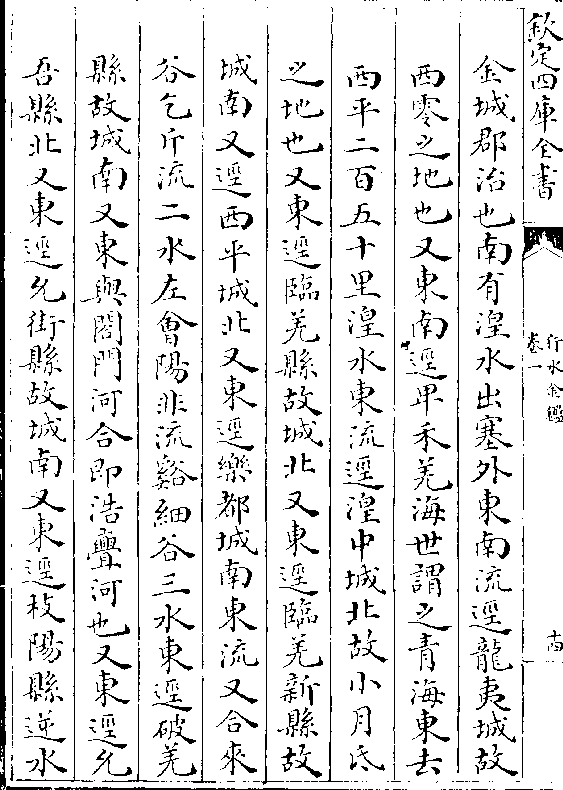 欽定四庫全書
行水金鑑
卷一
十四
金城郡治也南有湟水出塞外東南流逕龍夷城故
西零之地也又東南逕卑禾羌海世謂之青海東去
西平二百五十里湟水東流逕湟中城北故小月氏
之地也又東逕臨羌縣故城北又東逕臨羌新縣故
城南又逕西平城北又東逕樂都城南東流又合來
谷乞斤流二水左會陽非流谿細谷三水東逕破羌
縣故城南又東與閤門河合即浩亹河也又東逕允
吾縣北又東逕允街縣故城南又東逕枝陽縣逆水